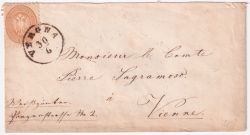 VERONA
30
6
Monsieur le Comte
Pierre Sagramoso
à
Vienne.
No 2.